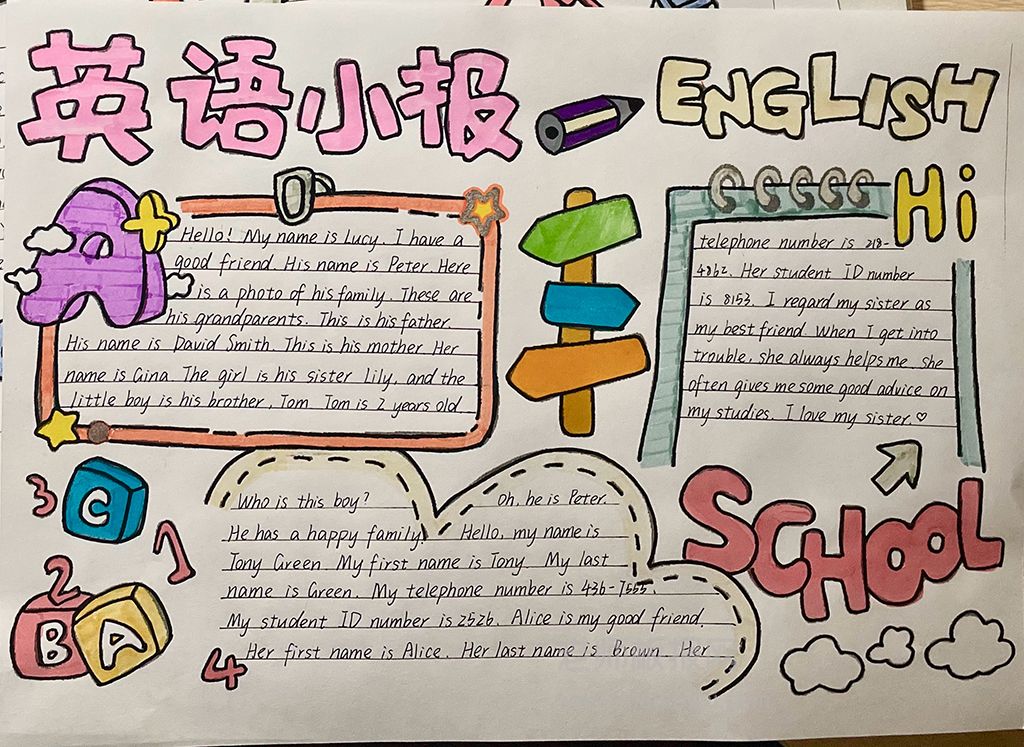 英语小报
ENGLISH
A
Hello! My name is Lucy. I have a
good friend. His name is Peter. Here
is a photo of his family. These are
his grandparents. This is his father.
His name is David Smith. This is his mother. Her
name is Gina. The girl is his sister lily, and the
little boy is his brother, Tom. Tom is 2 years old
Who is this boy? Oh, he is Peter.
He has a happy family! Hello, my name is
Tony Green. My first name is Tony. My last
name is Green. My telephone number is 436-7555.
My student ID number is 2526. Alice is my good friend.
Her first name is Alice. Her last name is Brown. Her
Hi
telephone number is 218-
4862. Her student ID number
is 8153. I regard my sister as
my best friend. When I get into
trouble, she always helps me. she
often gives me some good advice on
my studies. I love my sister.♡
SCHOOL
3
C
1
2
B
A
4